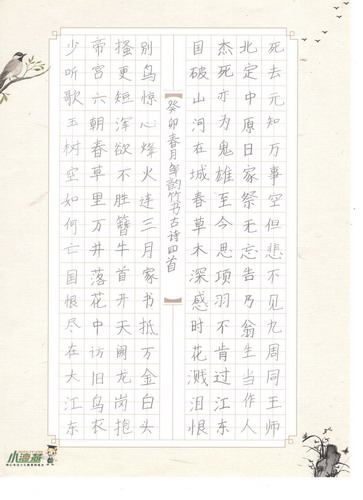 死去元知万事空但悲不见九周同王师
北定中原日家祭无忘告乃翁生当作人
杰死亦为鬼雄至今思项羽不肯过江东
国破山河在城春草木深感时花溅泪恨
【癸卯春月邹韵竹书古诗四首】
别鸟惊心烽火连三月家书抵万金白头
搔更短浑欲不胜簪牛首开天阙龙岗抱
帝宫六朝春草里万井落花中访旧乌衣
少听歌玉树空如何亡国恨尽在大江东